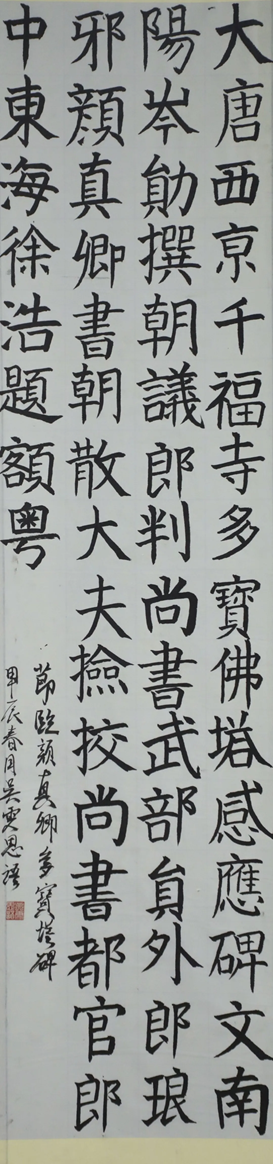 大唐西京千福寺多寶佛塔感應碑文南
陽岑勛撰朝議郎判尚書武部員外郎琅
邪顏真卿書朝散大夫撿挍尚書都官郎
中東海徐浩題額粵
節臨顏真卿多寶塔碑
甲辰春月吳